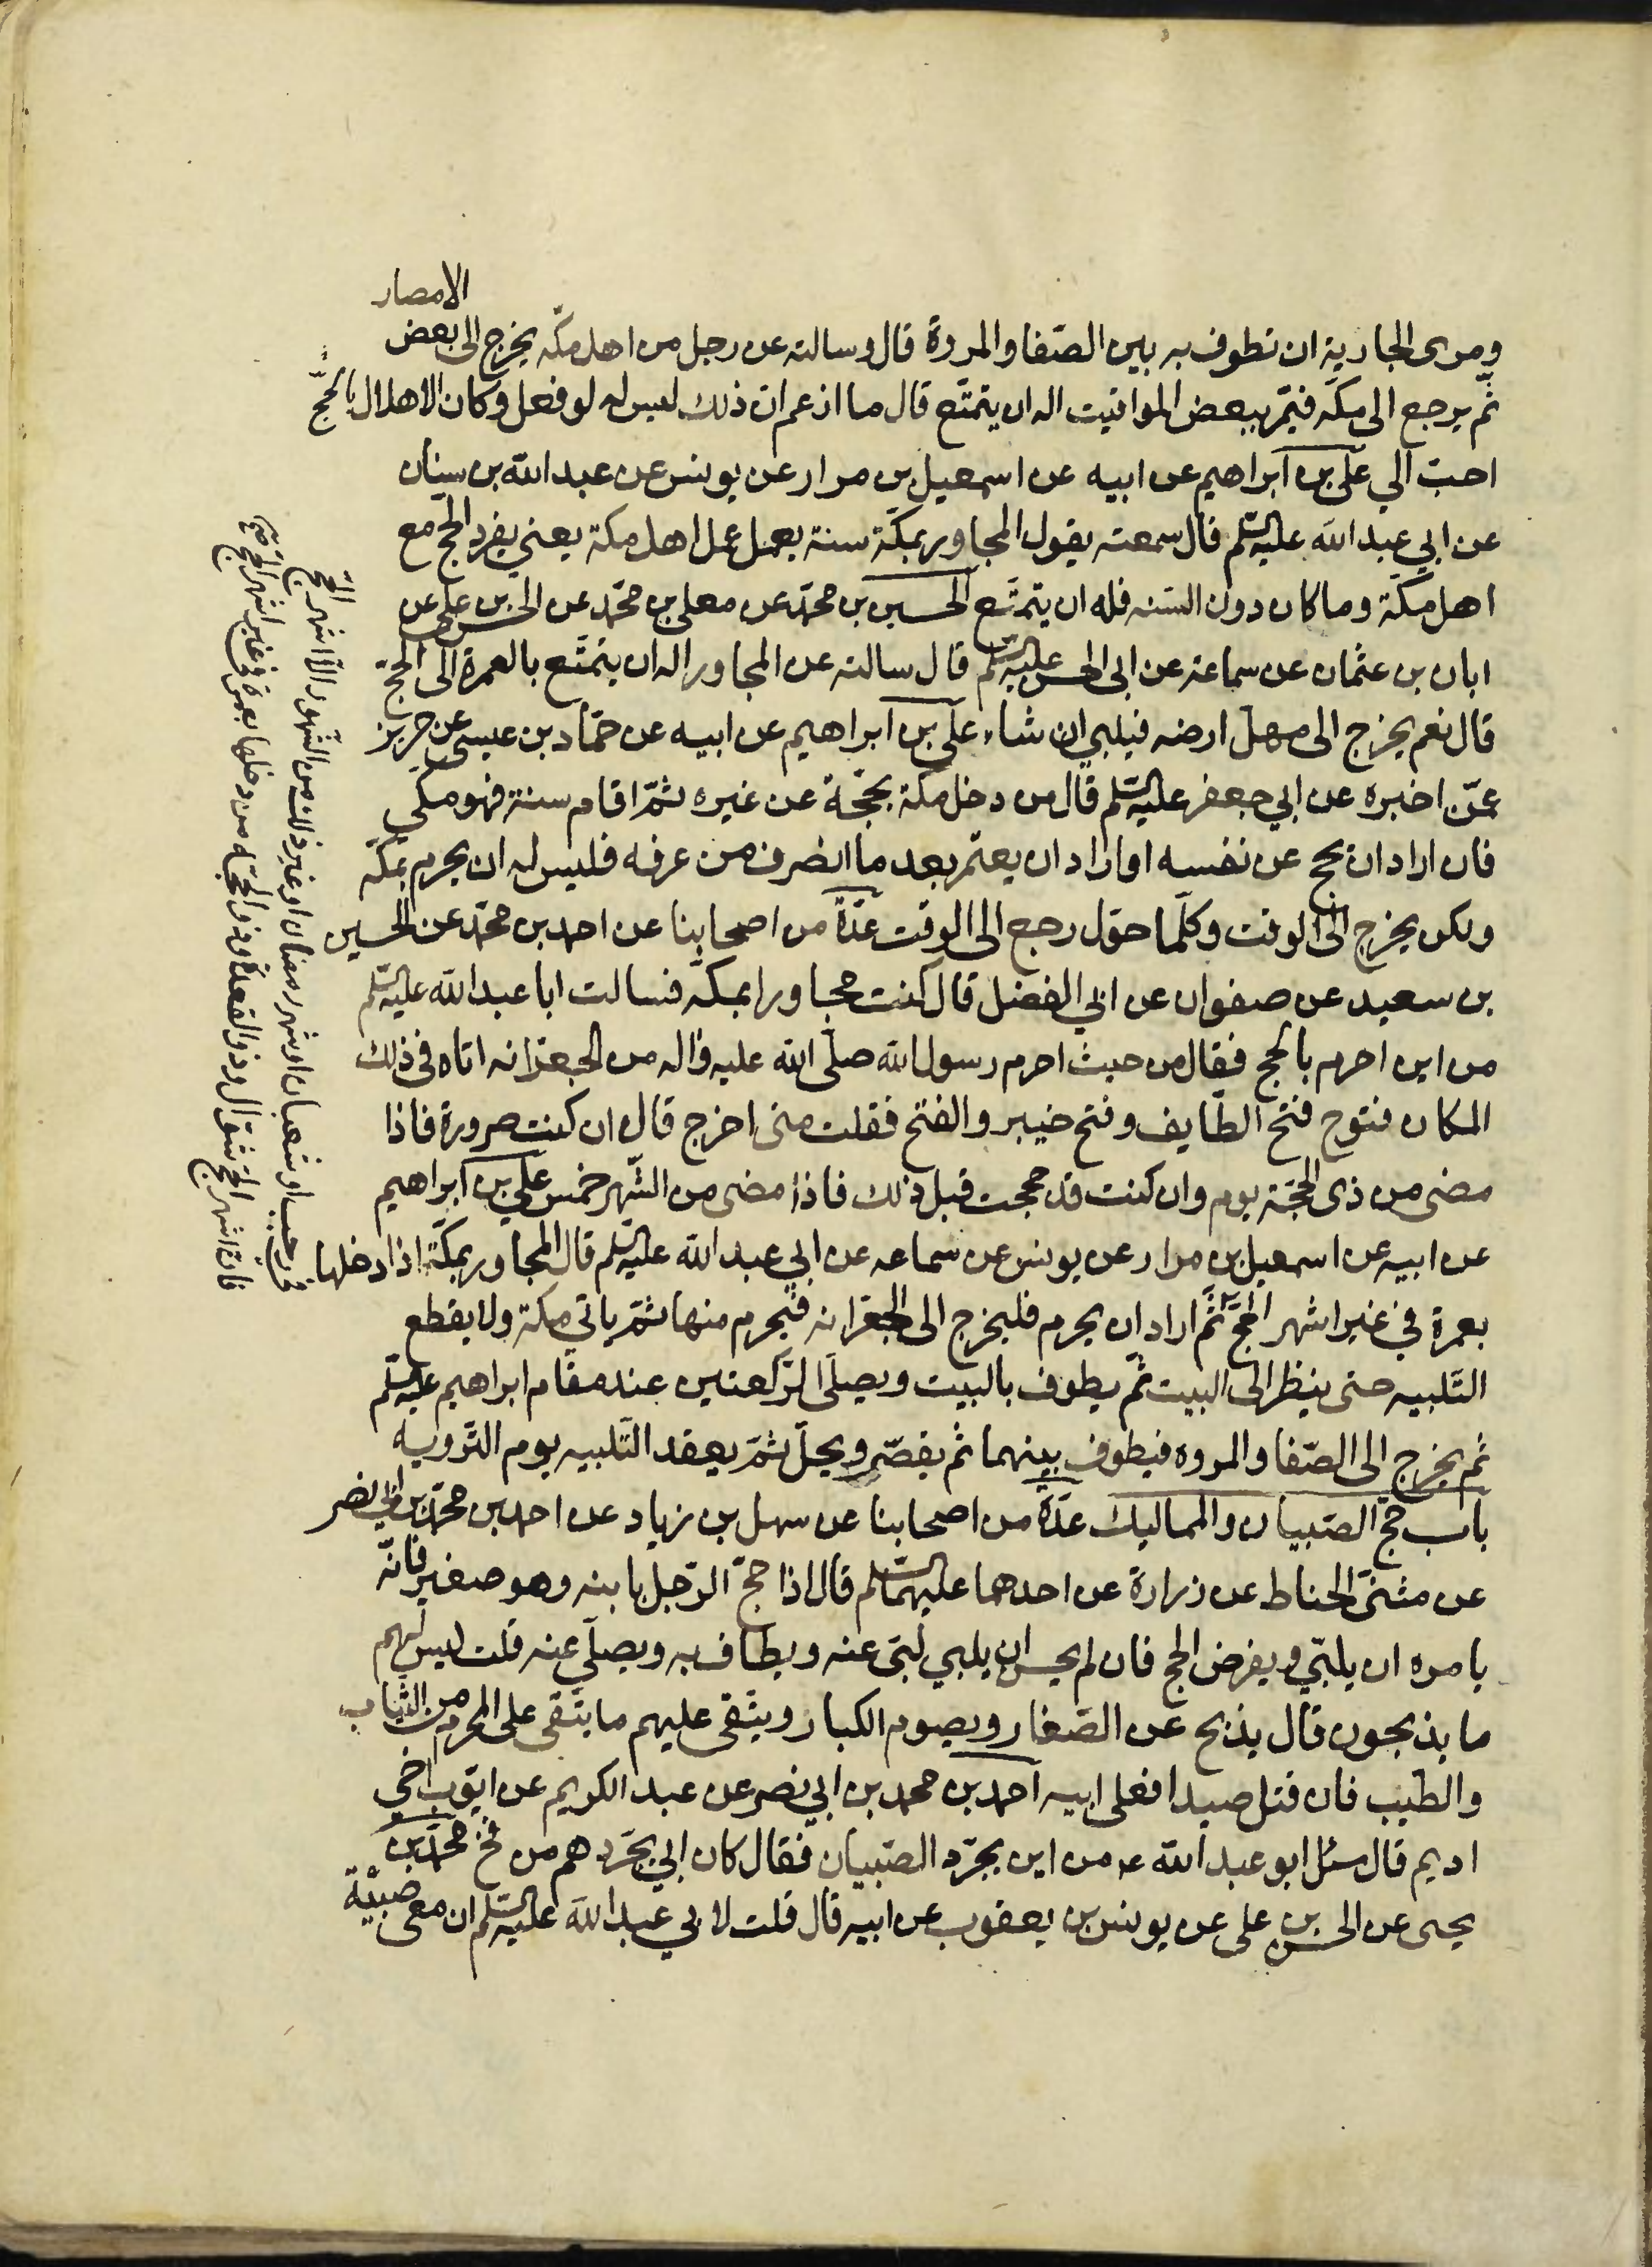 الامصار
ومرى الجارية ان تطوف به بين الصّفا والمروة قال وسالته عن رجل من اهل مكّه يخرج الى بعض
ثّم يرجع الى مكّه فيمّر ببعض المواقيت اله ان يتمتّع قال ما ازعم ان ذلك ليس له لو فعل وكان الاهلال بالحجّ
احبّ الي علي بن ابراهيم عن ابيه عن اسمعيل بن مرار عن يونس عن عبد الله بن سنان
عن ابي عبد الله عليه السّلم قال سمعته يقول المجاور بمكّة سنة يعمل عمل اهل مكة يعني يفرد الحج مع
اهل مكّة وما كان دون السّنه فله ان يتمتّع الحسين بن محمّد عن معلى بن محمّد عن الحسن بن علي عن
ابان بن عثمان عن سماعة عن ابى الحسن عليه السّلم قال سالته عن المجاور اله ان يتمتّع بالعمرة الى الحجّ
قال نعم يخرج الى مهلّ ارضه فيلبي ان شاء علي بن ابراهيم عن ابيه عن حمّاد بن عيسى عن حريز
عمّن اخبره عن ابي جعفر عليه السّلم قال من دخل مكة بحجّة عن غيره ثمّ اقام سنة فهو مكي
فان اراد ان يحج عن نفسه او اراد ان يعتمر بعد ما انصرف من عرفه فليس له ان يحرم بمكّه
ولكن يخرج الى الوقت وكلّما حوّل رجع الى الوقت عدّة من اصحابنا عن احمد بن محمّد عن الحسين
بن سعيد عن صفوان عن ابي الفضل قال كنت مجاورا بمكّه فسالت ابا عبد الله عليه السّلم
من اين احرم بالحج فقال من حيث احرم رسول الله صلّى الله عليه واله من الجعرّانه اتاه فى ذلك
المكان فتوح فتح الطّايف وفتح خيبر والفتح فقلت متى اخرج قال ان كنت صرورة فاذا
مضى من ذى الحجّة يوم وان كنت قد حججت قبل ذلك فاذا مضى من الشّهر خمس علي بن ابراهيم
عن ابيه عن اسمعيل بن مرار عن يونس عن سماعه عن ابي عبد الله عليه السّلم قال المجاور بمكّة اذا دخلها
بعمرة في غير اشهر الحجّ ثّم اراد ان يحرم فليخرج الى الجعرّانه فيحرم منها ثمّ ياتي مكة ولا يقطع
التّلبيه حتى ينظر الى البيت ثّم يطوف بالبيت ويصلّى الرّكعتين عند مقام ابراهيم عليه السّلم
ثّم يخرج الى الصّفا والمروه فيطوف بينهما ثم يقصّر ويحلّ ثمّ يعقد التّلبيه يوم التّرويه
باب حجّ الصّبيان والمماليك عدّة من اصحابنا عن سهل بن زياد عن احمد بن محمّد بن ابي نصر
عن مثنى الحناط عن زرارة عن احدهما عليهما السّلم قال اذا حجّ الرّجل بابنه وهو صغير فانّه
يامره ان يلبّي ويفرض الحج فان لم يحسن ان يلبي لبّى عنه ويطاف به ويصلّي عنه قلت ليس لهم
ما يذبحون قال يذبح عن الصّغار ويصوم الكبار ويتّقى عليهم ما يتّقى على المحرم من الثياب
والطيب فان قتل صيدا فعلى ابيه احمد بن محمد بن ابي نصر عن عبد الكريم عن ايّوب اخى
اديم قال سئل ابو عبد الله عه من اين يجرّد الصّبيان فقال كان ابي يجرّدهم من فخ محمّد بن
يحيى عن الحسن بن على عن يونس بن يعقوب عن ابيه قال قلت لابي عبد الله عليه السّلم ان معى صبيّة
في رجب او شعبان او شهر رمضان او غير ذلك من الشّهور الّا اشهر الحجّ
فان اشهر الحجّ شوّال وذو القعدة وذو الحجّة من دخلها بعمرة فى غير اشهر الحجّ صح